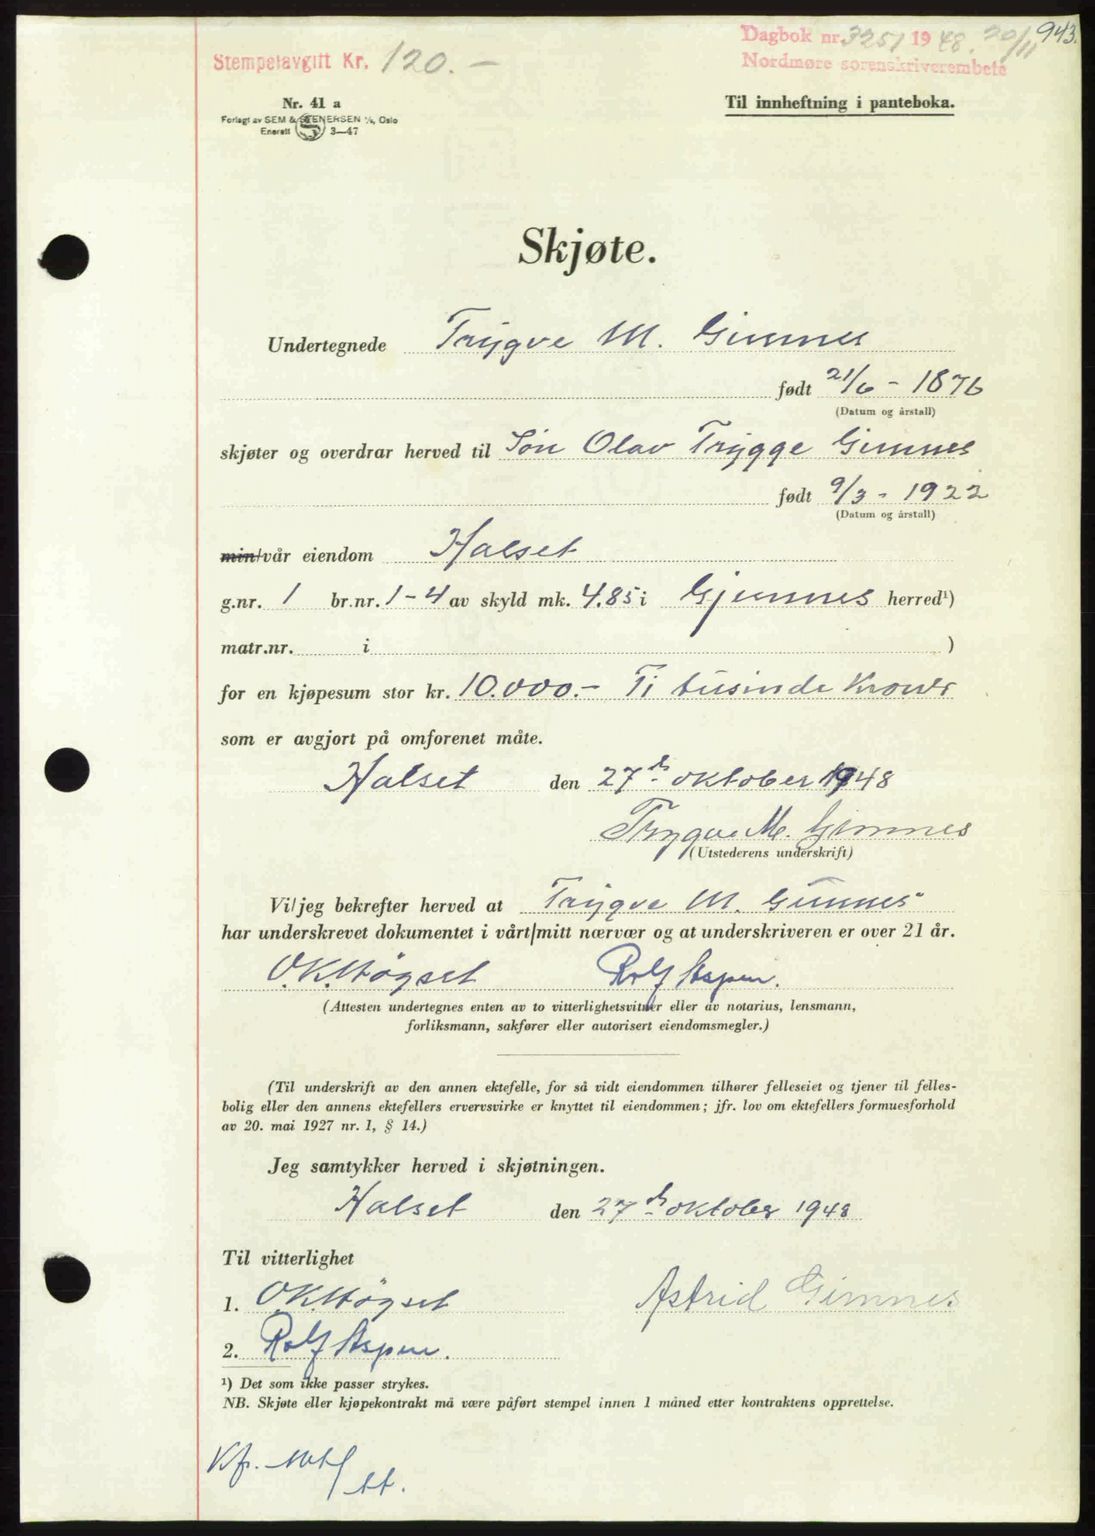 943.
Dagbok nr. 3251 1948. 20/11
Stempelavgift Kr. 120.-
Nordmøre sorenskriverembete
Nr. 41 a
Til innheftning i panteboka.
Forlagt av SEM & STENERSEN A/S, Oslo
Enerett 3—47
Skjøte.
Undertegnede Trygve M. Gimnes
født 21/6 - 1876
(Datum og årstall)
skjøter og overdrar herved til Søn Olav Trygge Gimnes
født 9/3 - 1922
(Datum og årstall)
min/vår eiendom Halset
g.nr. 1 br.nr. 1-4 av skyld mk. 4.85 i Gjemnes herred¹)
matr.nr. i )
for en kjøpesum stor kr. 10.000.- Ti tusinde Kroner
som er avgjort på omforenet måte.
Halset den 27de oktober 1948
Trygve M. Gimnes
(Utstederens underskrift)
Vi/jeg bekrefter herved at Trygve M. Gimnes
har underskrevet dokumentet i vårt/mitt nærvær og at underskriveren er over 21 år.
O.K. Høgset Rolf Aspen.
(Attesten undertegnes enten av to vitterlighetsvitner eller av notarius, lensmann,
forliksmann, sakfører eller autorisert eiendomsmegler.)
(Til underskrift av den annen ektefelle, for så vidt eiendommen tilhører felleseiet og tjener til felles-
bolig eller den annens ektefellers ervervsvirke er knyttet til eiendommen; jfr. lov om ektefellers formuesforhold
av 20. mai 1927 nr. 1, § 14.)
Jeg samtykker herved i skjøtningen.
Halset den 27de oktober 1948
Til vitterlighet
1. O.K. Høgset Astrid Gimnes
2. Rolf Aspen.
¹) Det som ikke passer strykes.
NB. Skjøte eller kjøpekontrakt må være påført stempel innen 1 måned etter kontraktens opprettelse.